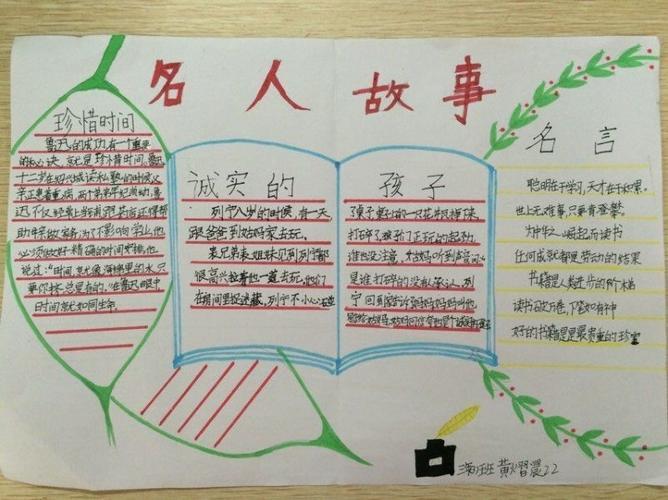 名人故事
珍惜时间
鲁迅的成功,有一个重要
的秘诀,就是珍惜时间。鲁迅
十二岁在绍兴城读私塾的时候,父
亲正患着重病,两个弟弟年纪尚幼,鲁
迅不仅经常上当铺,跑药店,还得帮
助母亲做家务,为了不影响学业,他
必须做好精确的时间安排。他
说过:"时间,就像海绵里的水,只
要你挤,总是有的。"在鲁迅眼中
时间就如同生命。
诚实的
列宁八岁的时候,有一天
跟爸爸到姑妈家去玩。
表兄弟表姐妹见到列宁都
很高兴,拉着他一道去玩。他们
在房间里捉迷藏,列宁不小心
孩子
打碎了,孩子们正玩的起劲,
谁也没注意,大姑妈听到声音
是谁打碎的没人承认。列
宁回到
名言
聪明在于学习,天才在于积累。
世上无难事,只要肯登攀。
为中华之崛起而读书
任何成就都是劳动的结果
书籍是人类进步的阶梯
读书破万卷,下笔如有神
好的书籍是最贵重的珍宝